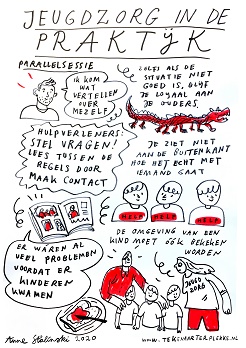 JEUGDZORG IN DE
PRAKTIJK
PARALLELSESSIE
IK KOM
WAT
VERTELLEN
OVER
MEZELF
ZELFS ALS DE
SITUATIE NIET
GOED IS, BLIJF
JE LOYAAL AAN
JE OUDERS.
HULPVERLENERS:
STEL VRAGEN!
LEES TUSSEN DE
REGELS DOOR
MAAK CONTACT
JE ZIET NIET
AAN DE BUITENKANT
HOE HET ECHT MET
IEMAND GAAT
HELP
HELP
HELP
ER WAREN AL
VEEL PROBLEMEN
VOORDAT ER
KINDEREN
KWAMEN
DE OMGEVING VAN EEN
KIND MOET ÓÓK BEKEKEN
WORDEN
JEUGD
ZORG
Anne Stalinski 2020
WWW.TEKENAARTERPLEKKE.NL